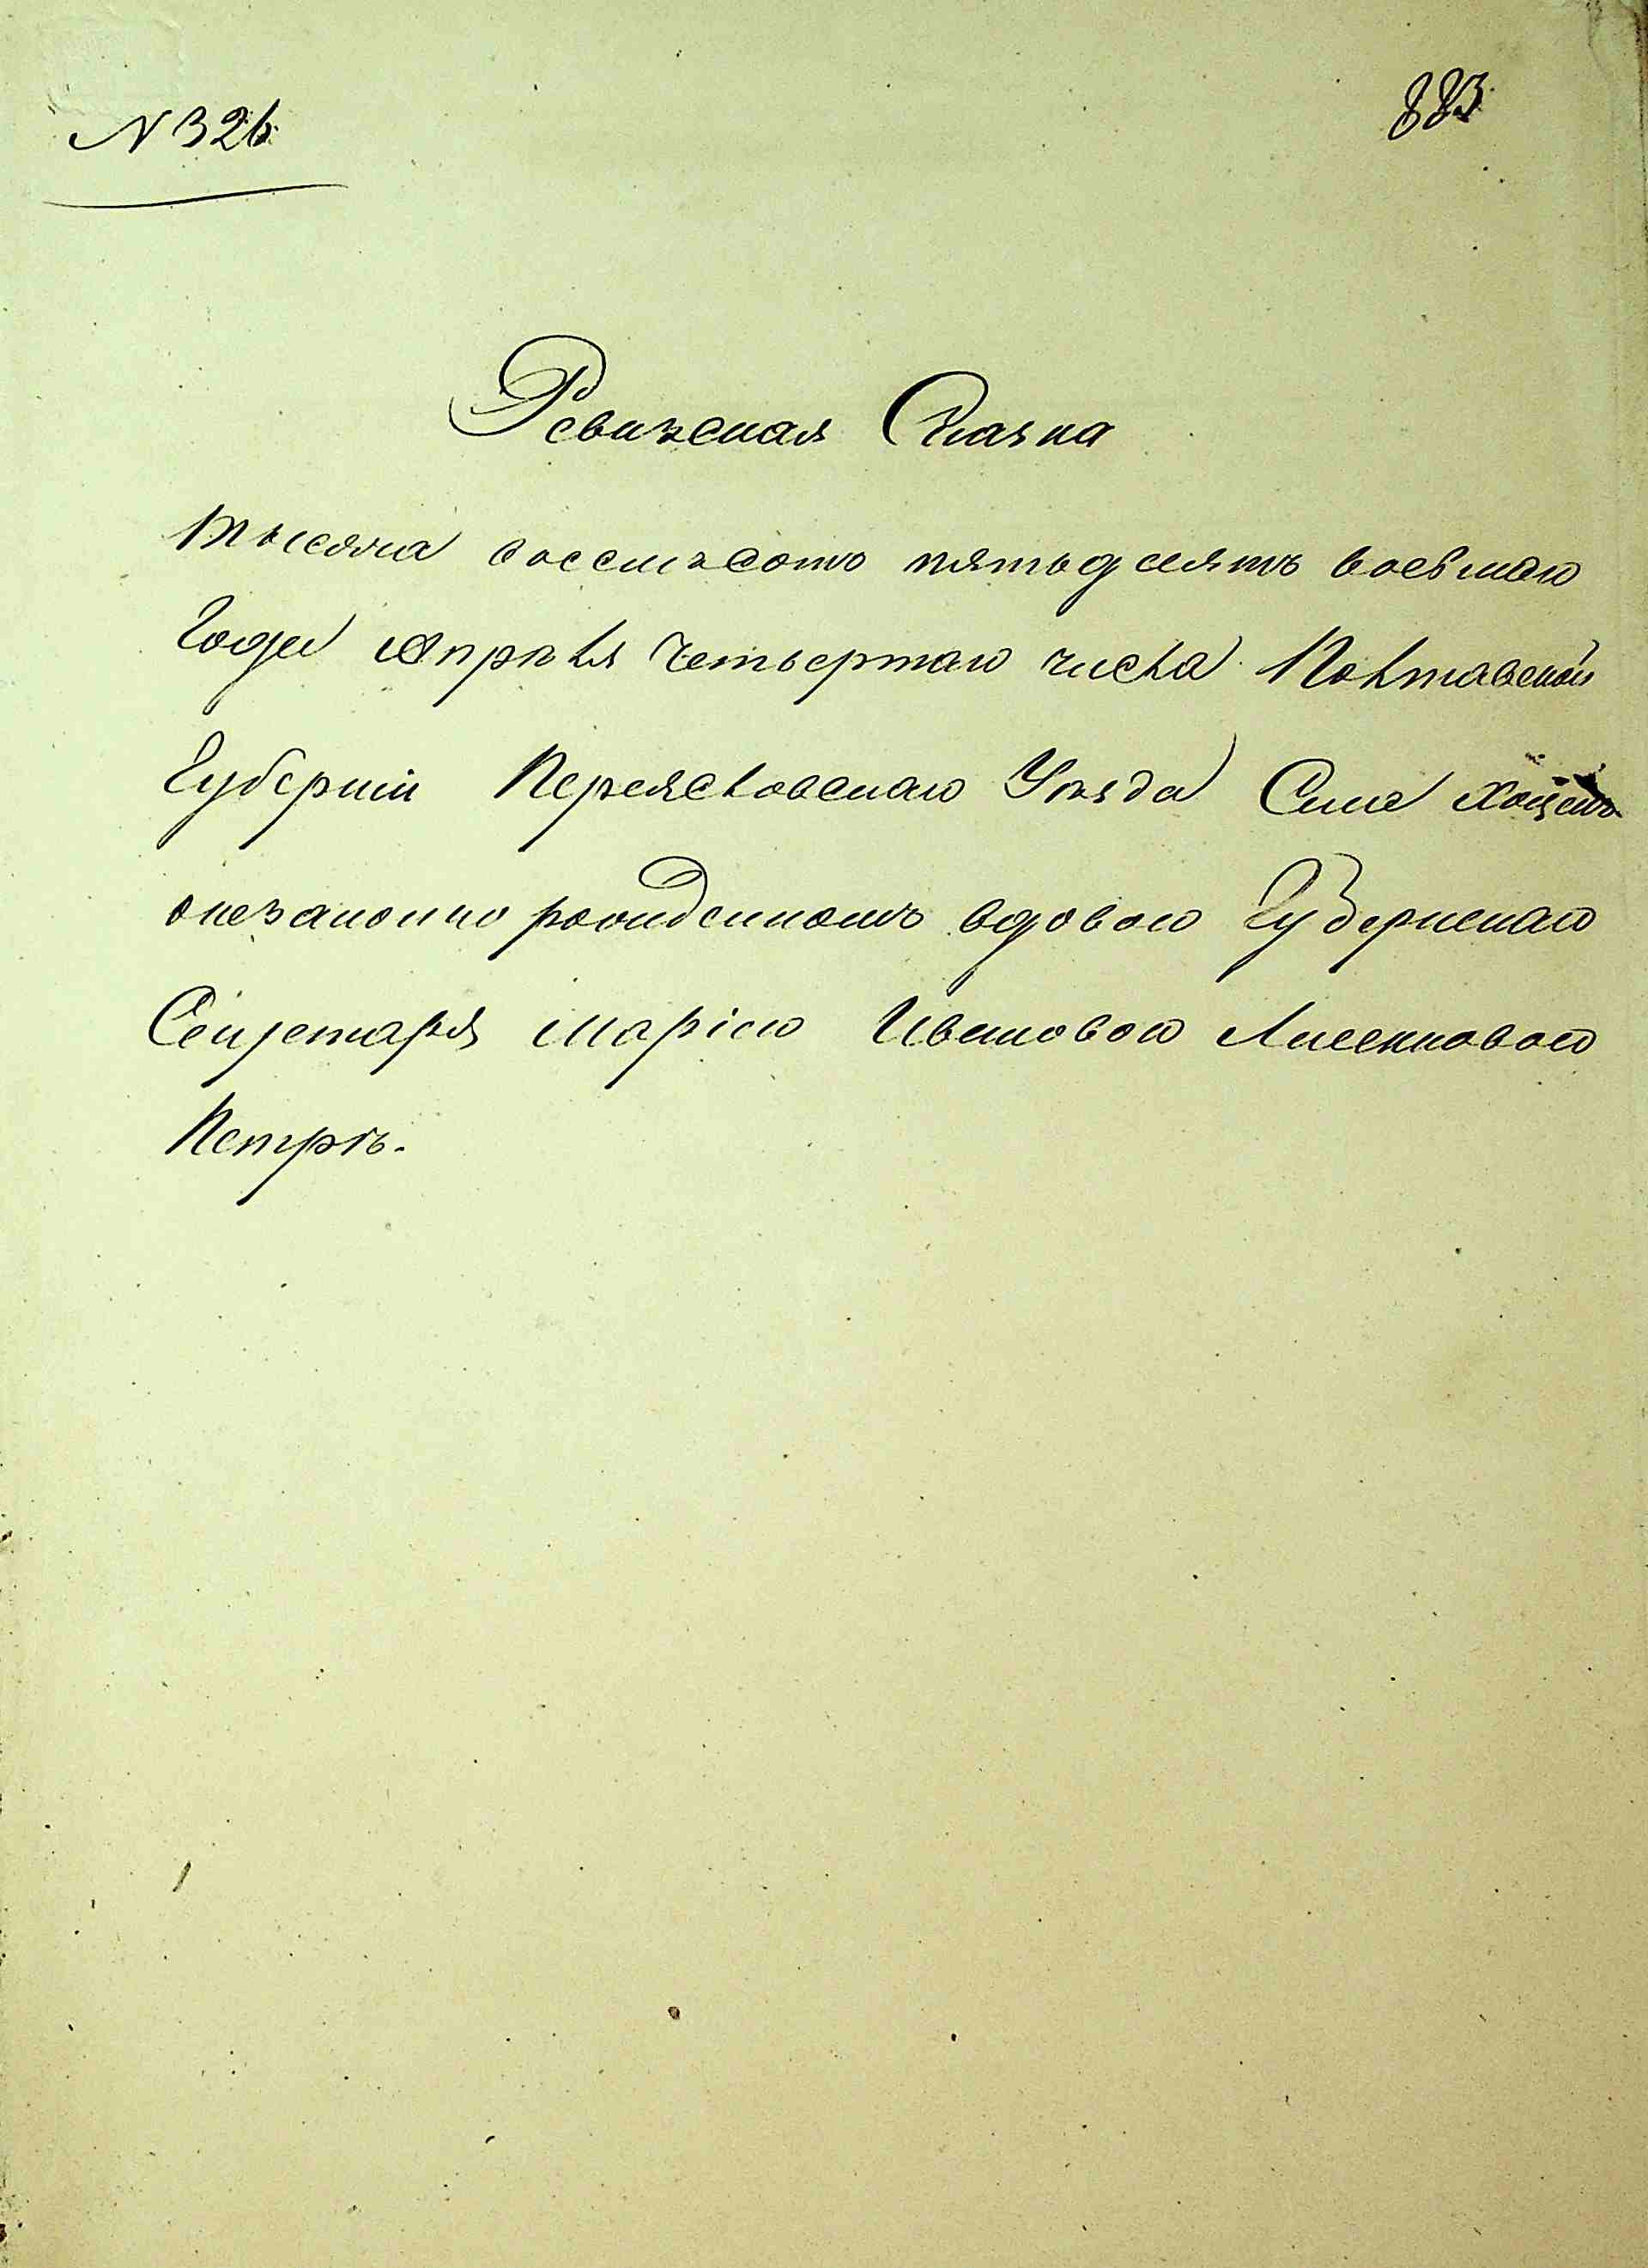 N 326.
883
Ревизская Сказка
Тысяча восемьсотъ пятьдесятъ восьмаго
Года Апрѣля Четьвертаго числа Полтавской
Губерніи Переясловскаго Уѣзда Села Хоцекъ
о незаконно рожденномъ вдовою Губернскаго
Секретаря Маріею Ивановою Лисенковою
Петрѣ.